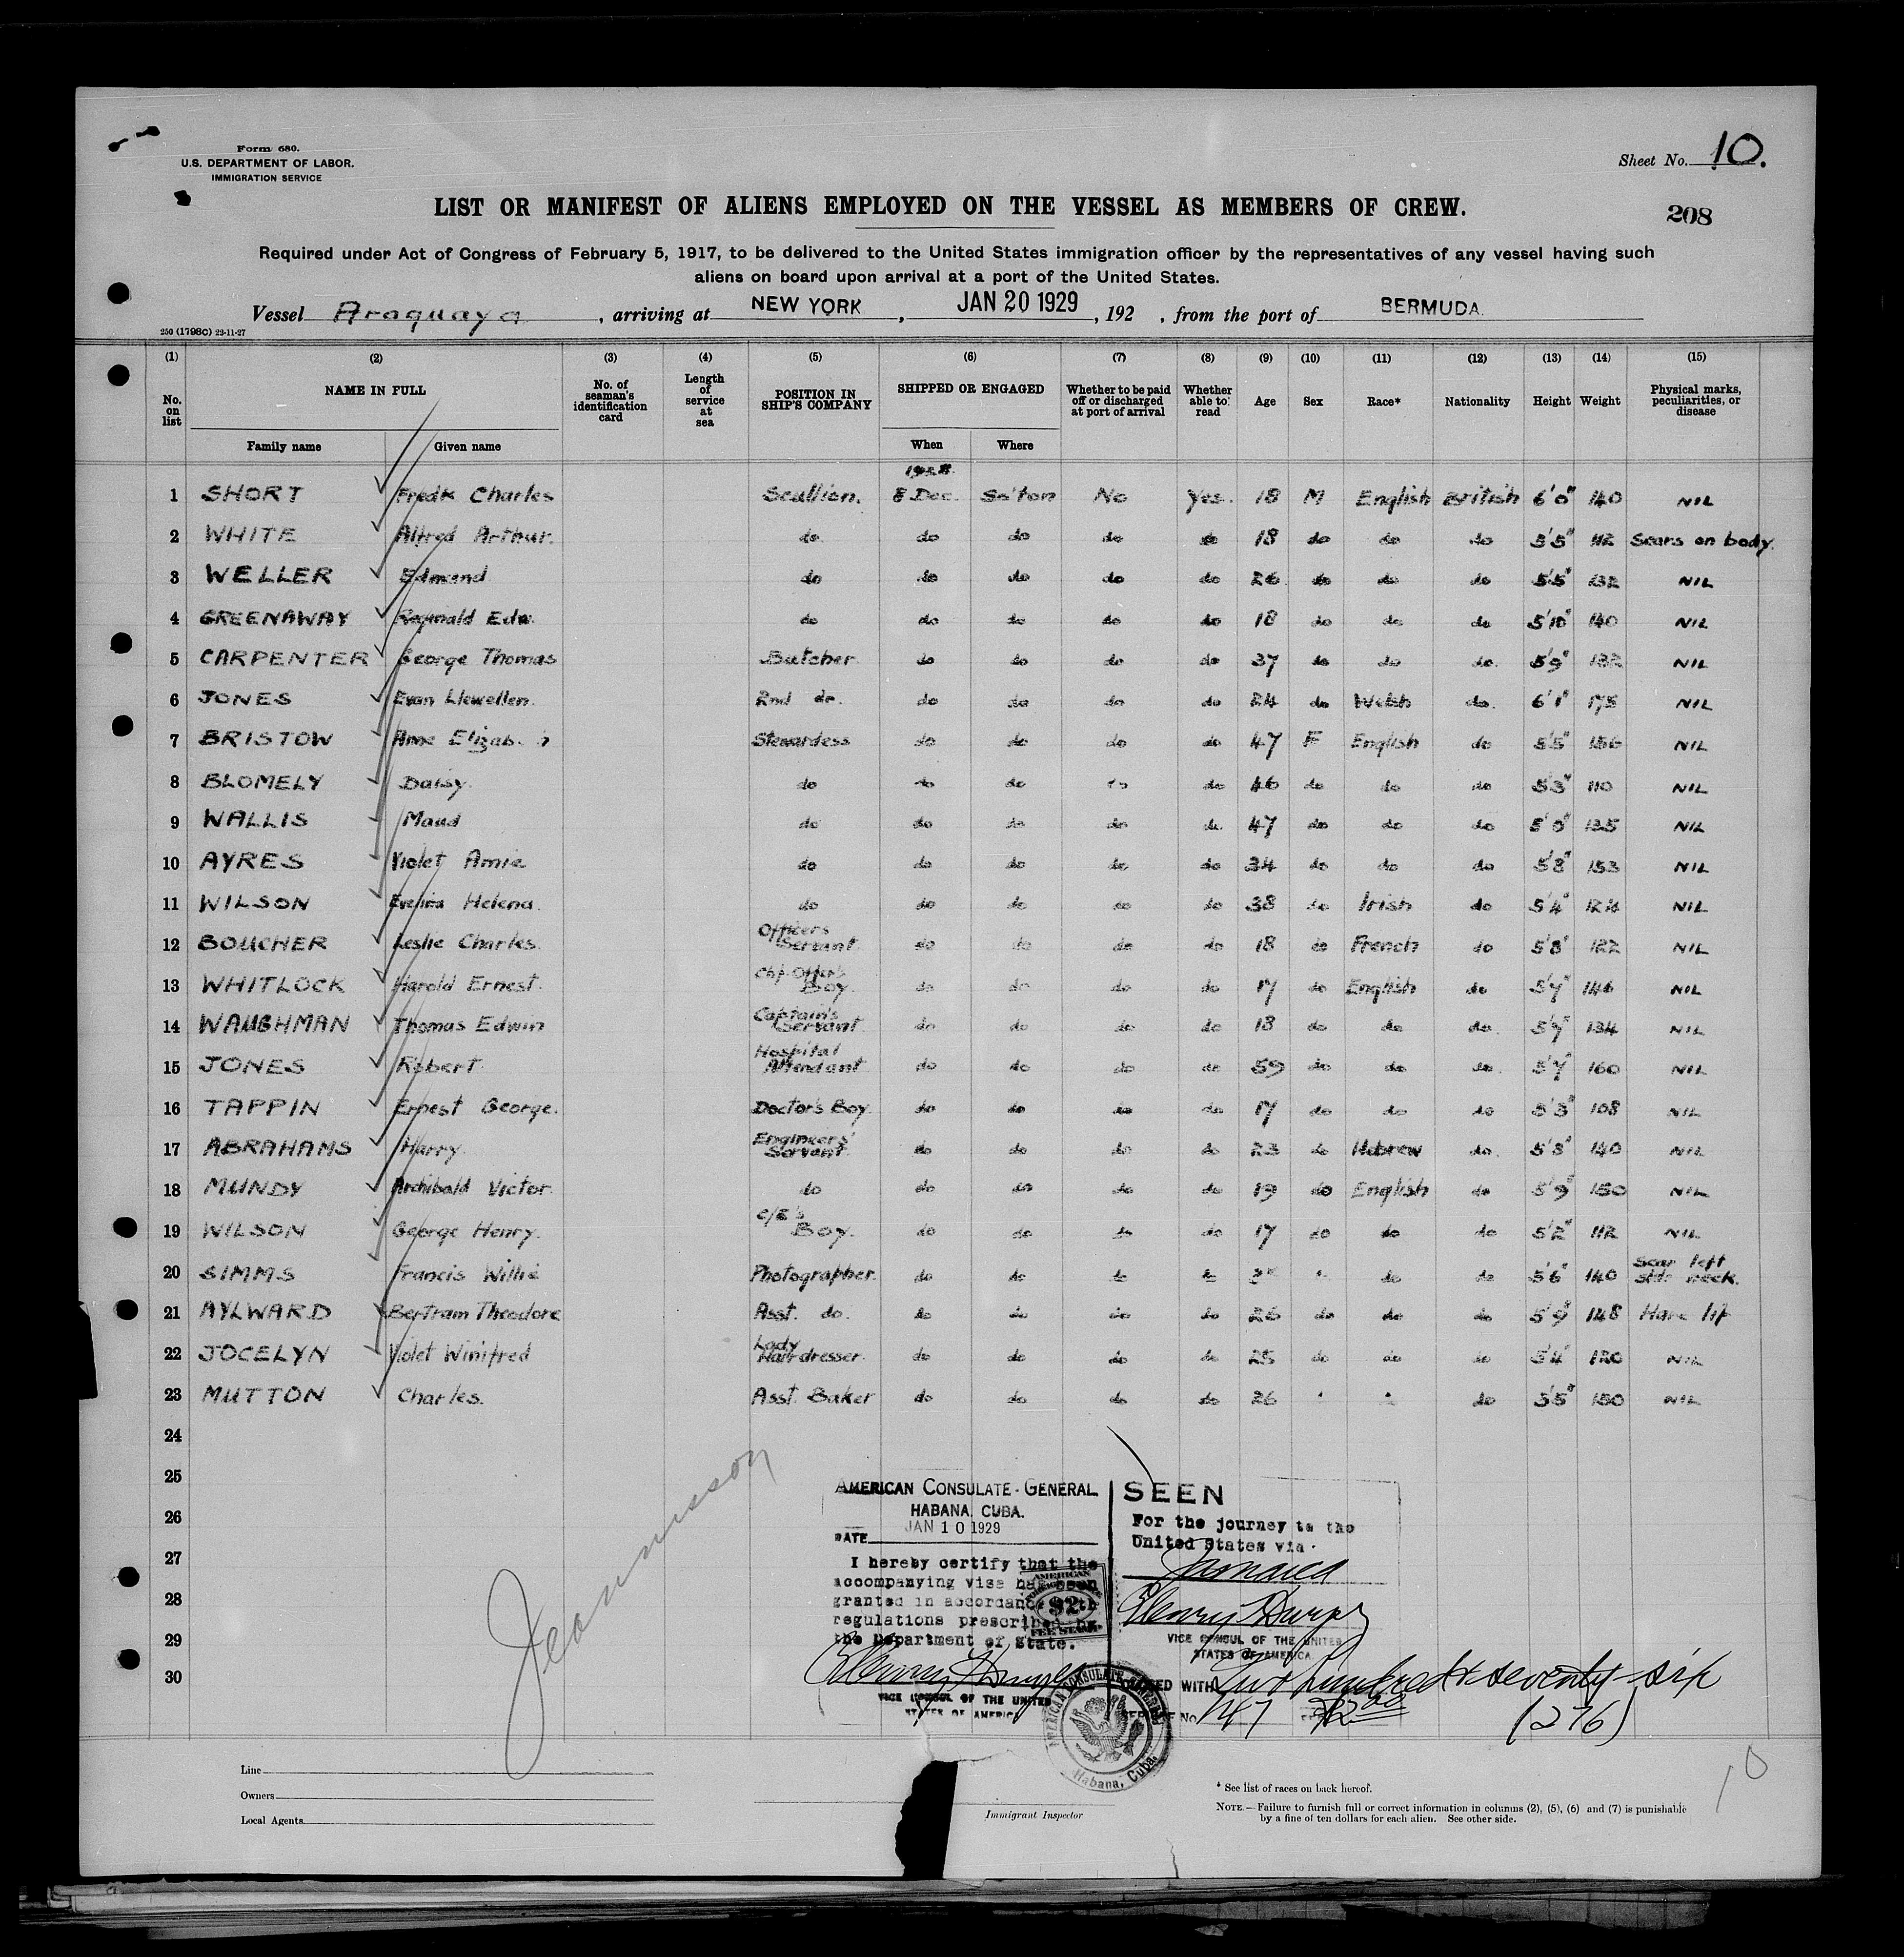 Form 680.
U.S. DEPARTMENT OF LABOR.
IMMIGRATION SERVICE
Sheet No. 10.
LIST OR MANIFEST OF ALIENS EMPLOYED ON THE VESSEL AS MEMBERS OF CREW.
208
Required under Act of Congress of February 5, 1917, to be delivered to the United States immigration officer by the representatives of any vessel having such
aliens on board upon arrival at a port of the United States.
Vessel Araguaya, arriving at NEW YORK, JAN 20 1929, 192 , from the port of BERMUDA.
250 (1798C) 23-11-27
(1) (2) (3) (4) (5) (6) (7) (8) (9) (10) (11) (12) (13) (14) (15)
No. on list NAME IN FULL No. of seaman's identification card Length of service at sea POSITION IN SHIP'S COMPANY SHIPPED OR ENGAGED Whether to be paid off or discharged at port of arrival Whether able to read Age Sex Race* Nationality Height Weight Physical marks, peculiarities, or disease
Family name Given name When Where
1928
1 SHORT Fredk Charles Scullion. 8 Dec. So'ton No Yes. 18 M English British 6'0" 140 NIL
2 WHITE Alfred Arthur. do do do do do 18 do do do 5'5" 112 Scars on body.
3 WELLER Edmund do do do do do 26 do do do 5'5" 132 NIL
4 GREENAWAY Reginald Edw. do do do do do 18 do do do 5'10" 140 NIL
5 CARPENTER George Thomas Butcher do do do do 37 do do do. 5'9" 132 NIL
6 JONES Evan Llewellen. 2nd do. do do do do 24 do Welsh do. 6'1" 175 NIL
7 BRISTOW Elizab. Stewardess do do do do 47 F English do 5'5" 156 NIL
8 BLOMELY Daisy. do do do do 46 do do do 5'3" 110 NIL
9 WALLIS Maud do do do do do 47 do do do 5'0" 135 NIL
10 AYRES Violet Amie do do do do do 34 do do do 5'8" 153 NIL
11 WILSON Helena. do do do do do 38 do Irish do 5'4" 124 NIL
12 BOUCHER Leslie Charles. Officers Servant do do do do 18 do French do 5'8" 122 NIL
13 WHITLOCK Harold Ernest. Boy. do do do do 17 do English do 5'7" 146 NIL
14 WAUGHMAN Thomas Edwin Captain's Servant do do do do 18 do do do. 5'7" 134 NIL
15 JONES Robert Hospital Attendant do do do do 59 do do do. 5'7" 160 NIL
16 TAPPIN Ernest George. Doctor's Boy. do do do do 17 do do do 5'3" 108 NIL
17 ABRAHAMS Harry. Engineers' Servant do do do do 23 do Hebrew do. 5'8" 140 NIL
18 MUNDY Archibald Victor do do do do do 19 do English do 5'9" 150 NIL
19 WILSON George Henry. C/E's Boy. do do do do 17 do do do 5'2" 112 NIL
20 SIMMS Francis Willie Photographer. do do do do do do 5'6" 140 Scar left side neck.
21 AYLWARD Bertram Theodore Asst. do. do do do do 26 do do do 5'9" 148 Hare lip
22 JOCELYN Violet Winifred Lady Hairdresser. do do do do 25 do do do 5'4" 120 NIL
23 MUTTON Charles. Asst. Baker do do do do 26 do 5'5" 150 NIL
24
25
26
27
28
29
30
AMERICAN CONSULATE-GENERAL
HABANA, CUBA.
JAN 10 1929
DATE
I hereby certify that the
accompanying vise has been
granted in accordance with
regulations prescribed by
the Department of State.
VICE CONSUL OF THE UNITED
STATES OF AMERICA
AMERICAN
$2
FEE STAMP
SEEN
For the journey to the
United States via
Jamaica
VICE CONSUL OF THE UNITED
STATES OF AMERICA
WITH Two hundred & seventy-six
No. $2.00 (276)
AMERICAN CONSULATE GENERAL
Habana, Cuba.
Line
Owners
Local Agents
Immigrant Inspector
* See list of races on back hereof.
NOTE.—Failure to furnish full or correct information in columns (2), (5), (6) and (7) is punishable
by a fine of ten dollars for each alien. See other side.
10